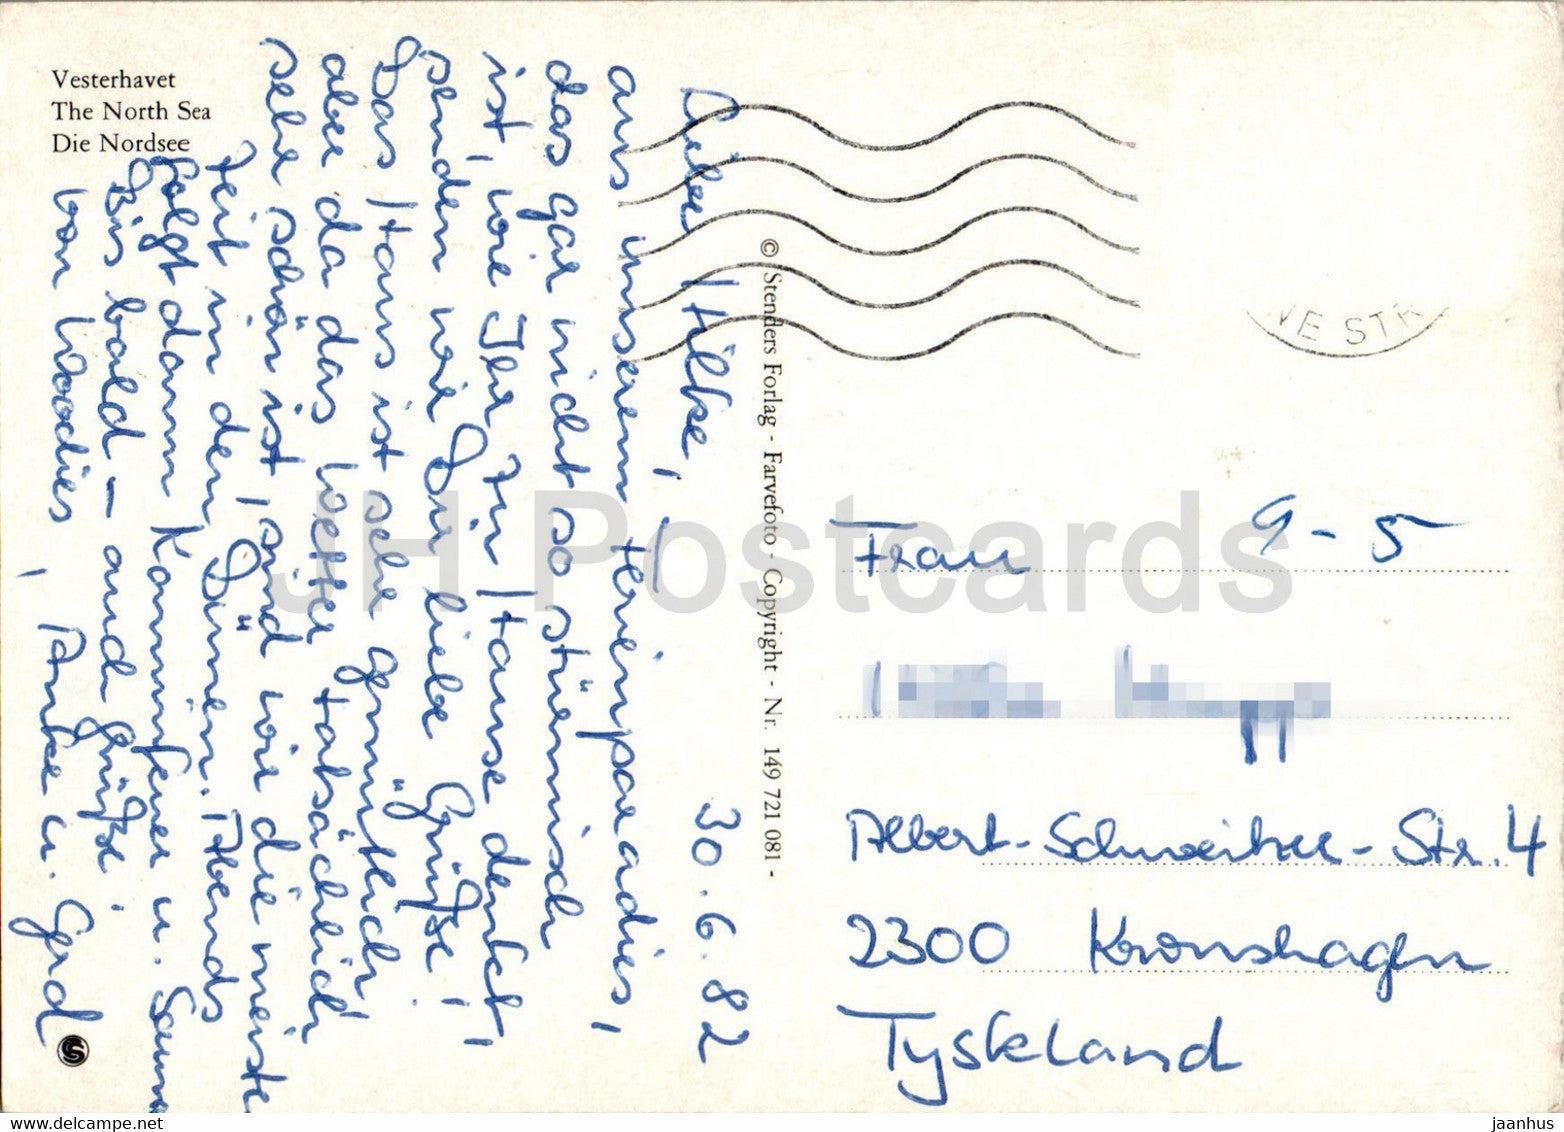 Vesterhavet
The North Sea
Die Nordsee
30.6.82
Liebe Hilke,
aus unserem Ferienparadies,
das gar nicht so stürmisch
ist, wie Ihr zu Hause denkt,
senden wir Dir liebe Grüße!
Das Haus ist sehr gemütlich,
aber da das Wetter tatsächlich
sehr schön ist, sind wir die meiste
Zeit in den Dünen. Abends
folgt dann Kaminfeuer u. Sauna
Bis bald - auch Grüße
von Woodies, Anke u. Gerd
© Stenders Forlag - Farvefoto - Copyright - Nr. 149 721 081 -
NE STR
9-5
Frau
Albert-Schweitzer-Str. 4
2300 Kronshagen
Tyskland
JH Postcards
www.delcampe.net
jaanhus